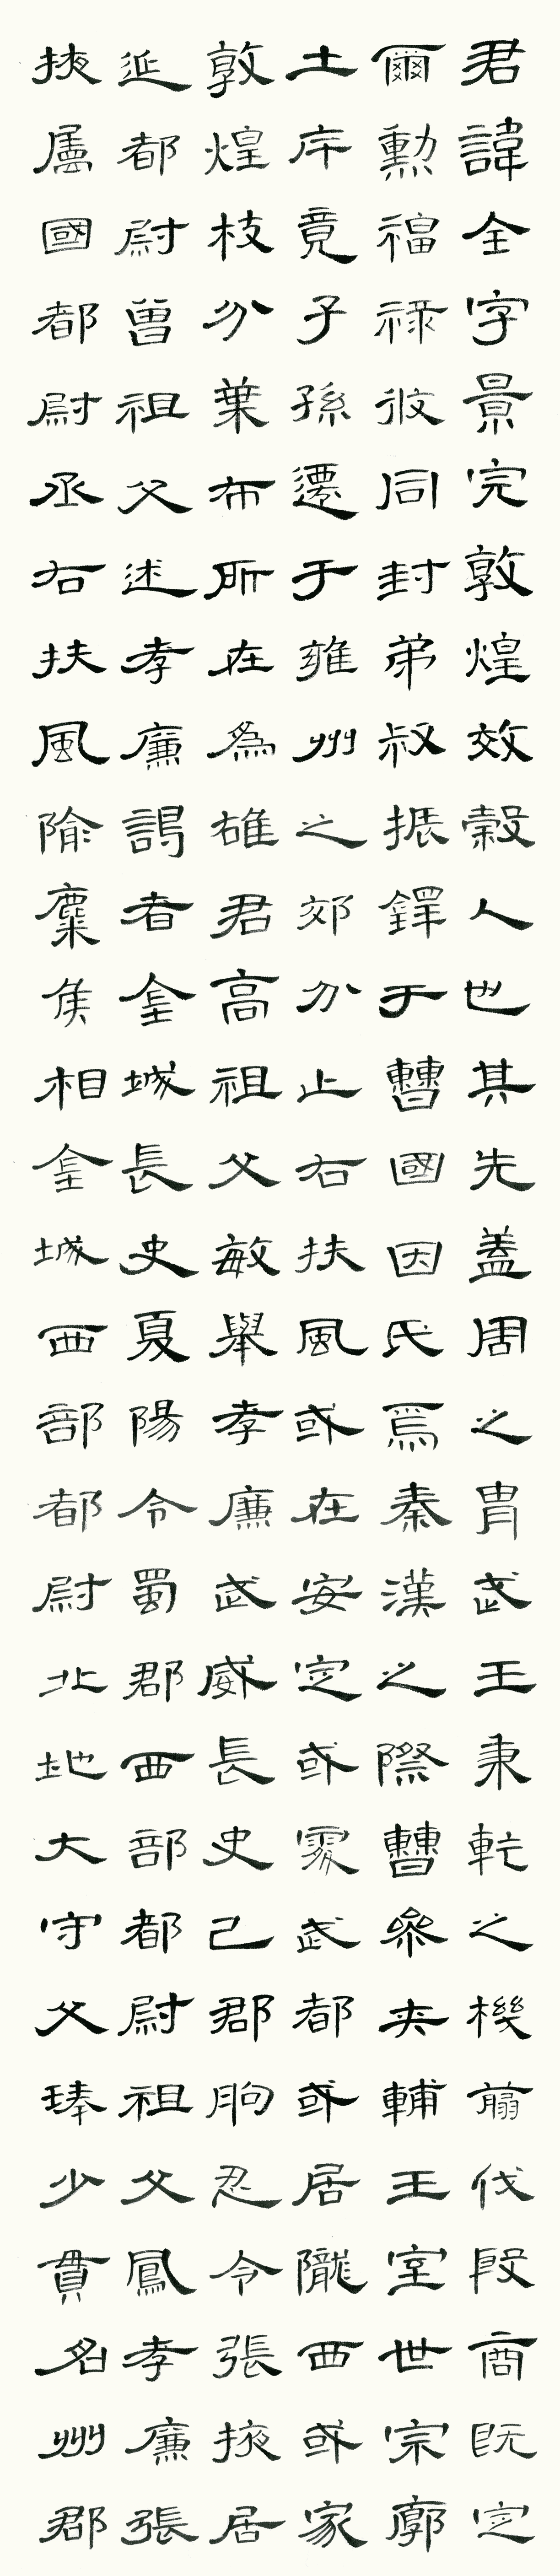 君諱全字景完敦煌效穀人也其先蓋周之胄武王秉乾之機翦伐殷商既定
爾勳福祿攸同封弟叔振鐸于曹國因氏焉秦漢之際曹參夾輔王室世宗廓
土斥竟子孫遷于雍州之郊分止右扶風或在安定或處武都或居隴西或家
敦煌枝分葉布所在為雄君高祖父敏舉孝廉武威長史巴郡朐忍令張掖居
延都尉曾祖父述孝廉謁者金城長史夏陽令蜀郡西部都尉祖父鳳孝廉張
掖屬國都尉丞右扶風隃麋侯相金城西部都尉北地大守父琫少貫名州郡